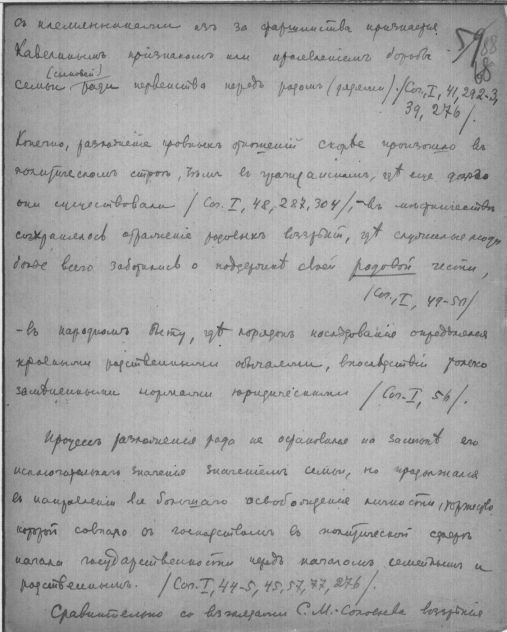 съ племянниками изъ за старшинства признается
Кавелинымъ признакомъ или проявленіемъ борьбы
(сыновей)
семьи ради первенства передъ родомъ (дядями) /Соч., I, 41, 292-3,
39, 276/.
Конечно, разложеніе кровныхъ отношеній скорѣе произошло въ
политическомъ строѣ, чѣмъ въ гражданскомъ, гдѣ еще долго
они существовали /Соч. I, 48, 287, 304/, – въ мѣстничествѣ
сохранялось отраженіе родовыхъ воззрѣній, гдѣ служилые люди
болѣе всего заботились о поддержкѣ своей родовой чести,
/Соч., I, 49-50/
– въ народномъ быту, гдѣ порядокъ наслѣдованія опредѣлялся
кровными родственными обычаями, впослѣдствіи только
замѣненными нормами юридическими /Соч. I, 56/.
Процессъ разложенія рода не остановился на замѣнѣ его
исключительнаго значенія значеніемъ семьи, но продолжался
въ направленіи все большаго освобожденія личности, торжество
которой совпало съ господствомъ въ политической сферѣ
начала государственности передъ началомъ семейнымъ и
родственнымъ. /Соч. I, 44-5, 45, 57, 77, 276/.
Сравнительно со взглядами С. М. Соловьева воззрѣнія